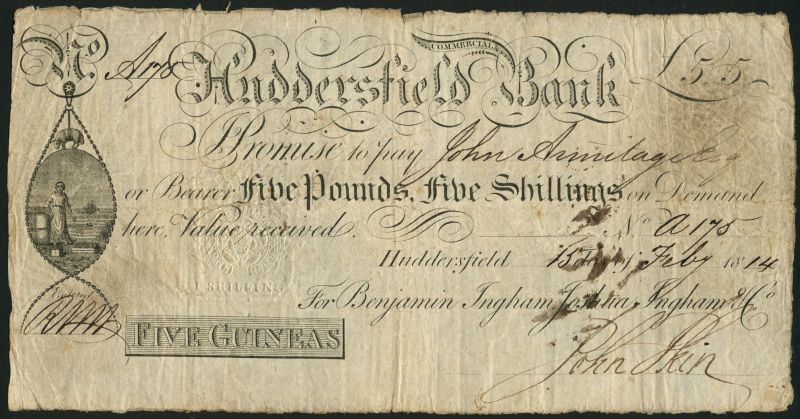 No A175 COMMERCIAL £5.5-
Huddersfield Bank
I Promise to pay John Armitage Esq
or Bearer Five Pounds, Five Shillings on Demand
here, Value received. No A175
Huddersfield 15 Day of Feby 1814
For Benjamin Ingham, Joshua Ingham & Co.
Entered
1 SHILLING
FIVE GUINEAS
John